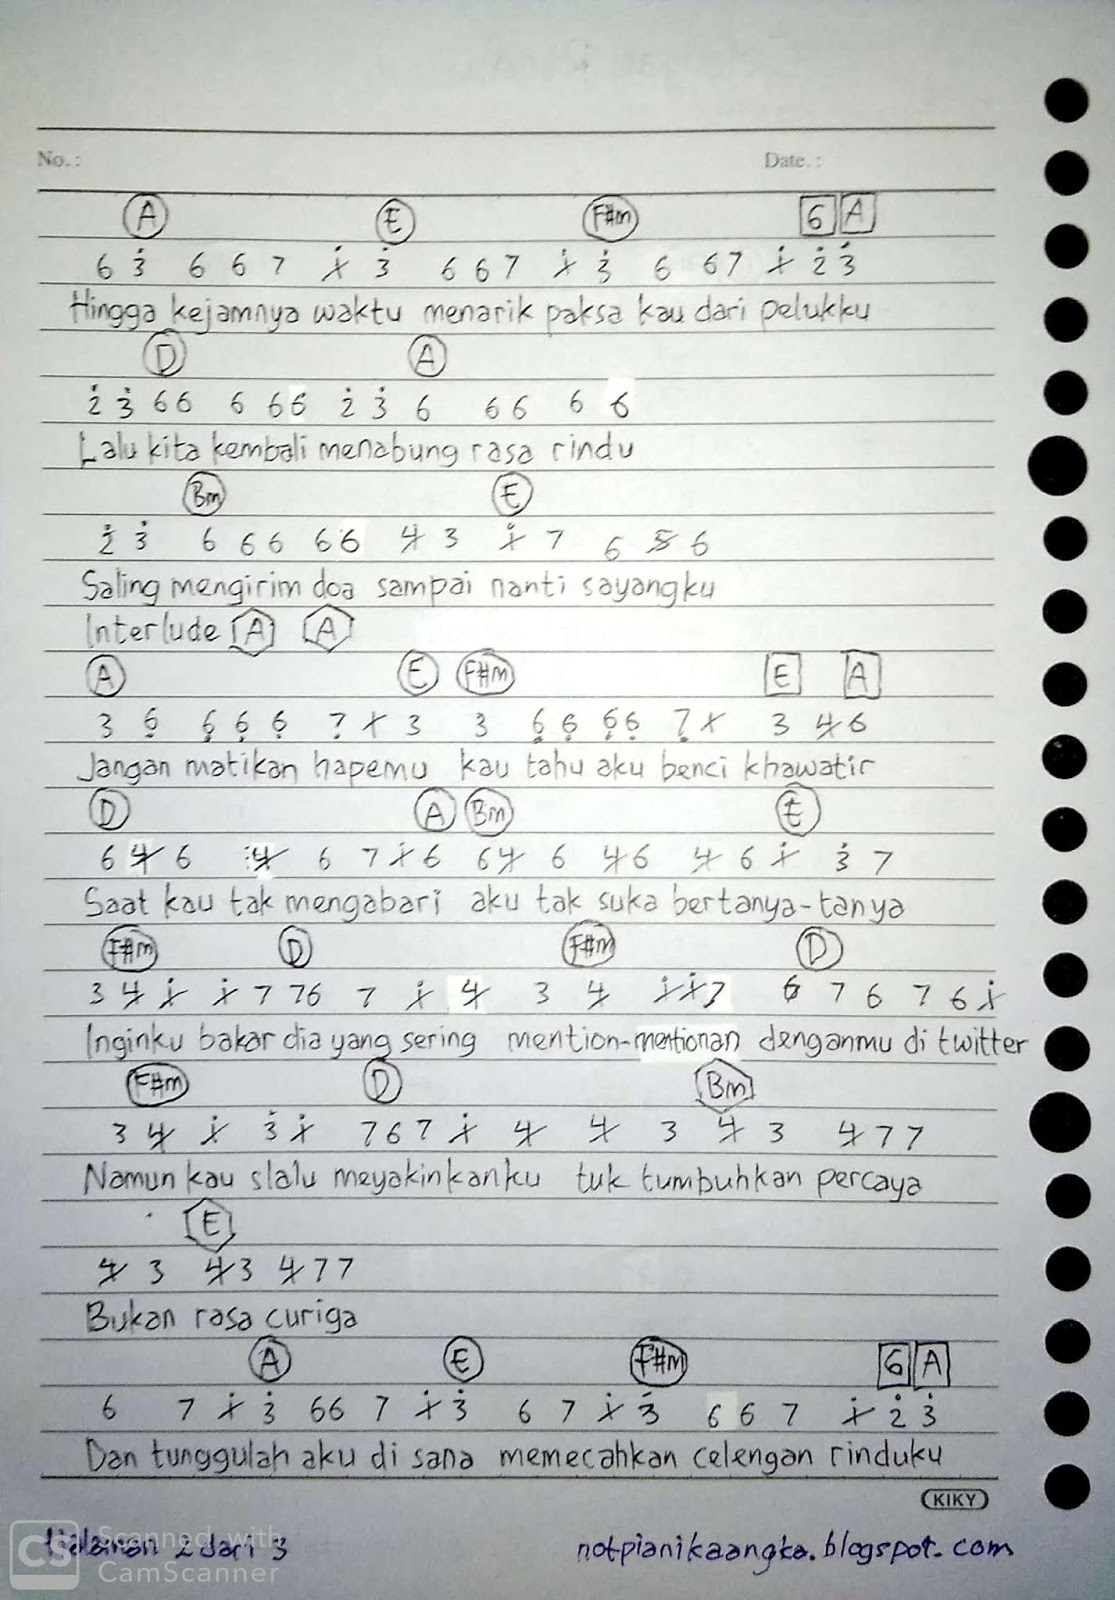 No.: Date.:
A E F#m G A
6 3̇ 6 6 7 1̸̇ 3̇ 6 6 7 1̸̇ 3̇ 6 67 1̸̇ 2̇ 3̇
Hingga kejamnya waktu menarik paksa kau dari pelukku
D A
2̇ 3̇ 66 6 66 2̇ 3̇ 6 66 6 6
Lalu kita kembali menabung rasa rindu
Bm E
2̇ 3̇ 6 66 66 4̸ 3 1̸̇ 7 6 5̸ 6
Saling mengirim doa sampai nanti sayangku
Interlude A A
A E F#m E A
3 6̣ 6̣ 6̣ 6̣ 7̣ 1̸ 3 3 6̣ 6̣ 6̣6̣ 7̣ 1̸ 3 4̸6
Jangan matikan hapemu kau tahu aku benci khawatir
D A Bm E
6 4̸ 6 4̸ 6 7 1̸̇ 6 64̸ 6 4̸6 4̸ 6 1̸̇ 3̇ 7
Saat kau tak mengabari aku tak suka bertanya-tanya
F#m D F#m D
3 4̸ 1̸̇ 1̸̇ 7 76 7 1̸̇ 4̸ 3 4̸ 1̸̇1̸̇7 6 7 6 7 6 1̸̇
Inginku bakar dia yang sering mention-mentionan denganmu di twitter
F#m D Bm
3 4̸ 1̸̇ 3̇ 1̸̇ 7 6 7 1̸̇ 4̸ 4̸ 3 4̸ 3 4̸ 7 7
Namun kau slalu meyakinkanku tuk tumbuhkan percaya
E
4̸ 3 4̸3 4̸77
Bukan rasa curiga
A E F#m G A
6 7 1̸̇ 3̇ 66 7 1̸̇ 3̇ 6 7 1̸̇ 3̇ 6 6 7 1̸̇ 2̇ 3̇
Dan tunggulah aku di sana memecahkan celengan rinduku
KIKY
Halaman 2 dari 3 notpianikaangka.blogspot.com
CS Scanned with
CamScanner